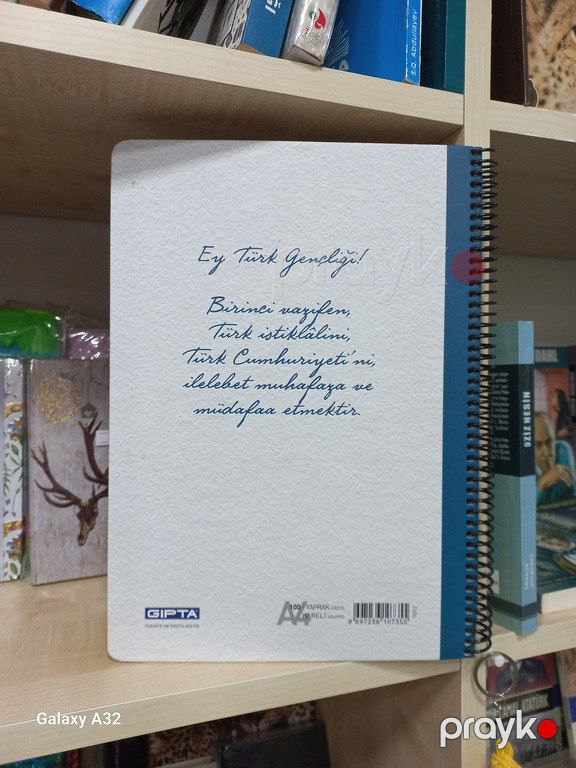 S.Q. Abdullayev
Ey Türk Gençliği!
Birinci vazifen,
Türk istiklâlini,
Türk Cumhuriyeti'ni,
ilelebet muhafaza ve
müdafaa etmektir.
DAHL
ƏZİZ NESİN
GIPTA
TÜRKİYE'DE ÜRETİLMİŞTİR
A4
100 YAPRAK SHEETS
KARELİ SQUARES
8 697236 107355
ATATÜRK
Galaxy A32
prayko